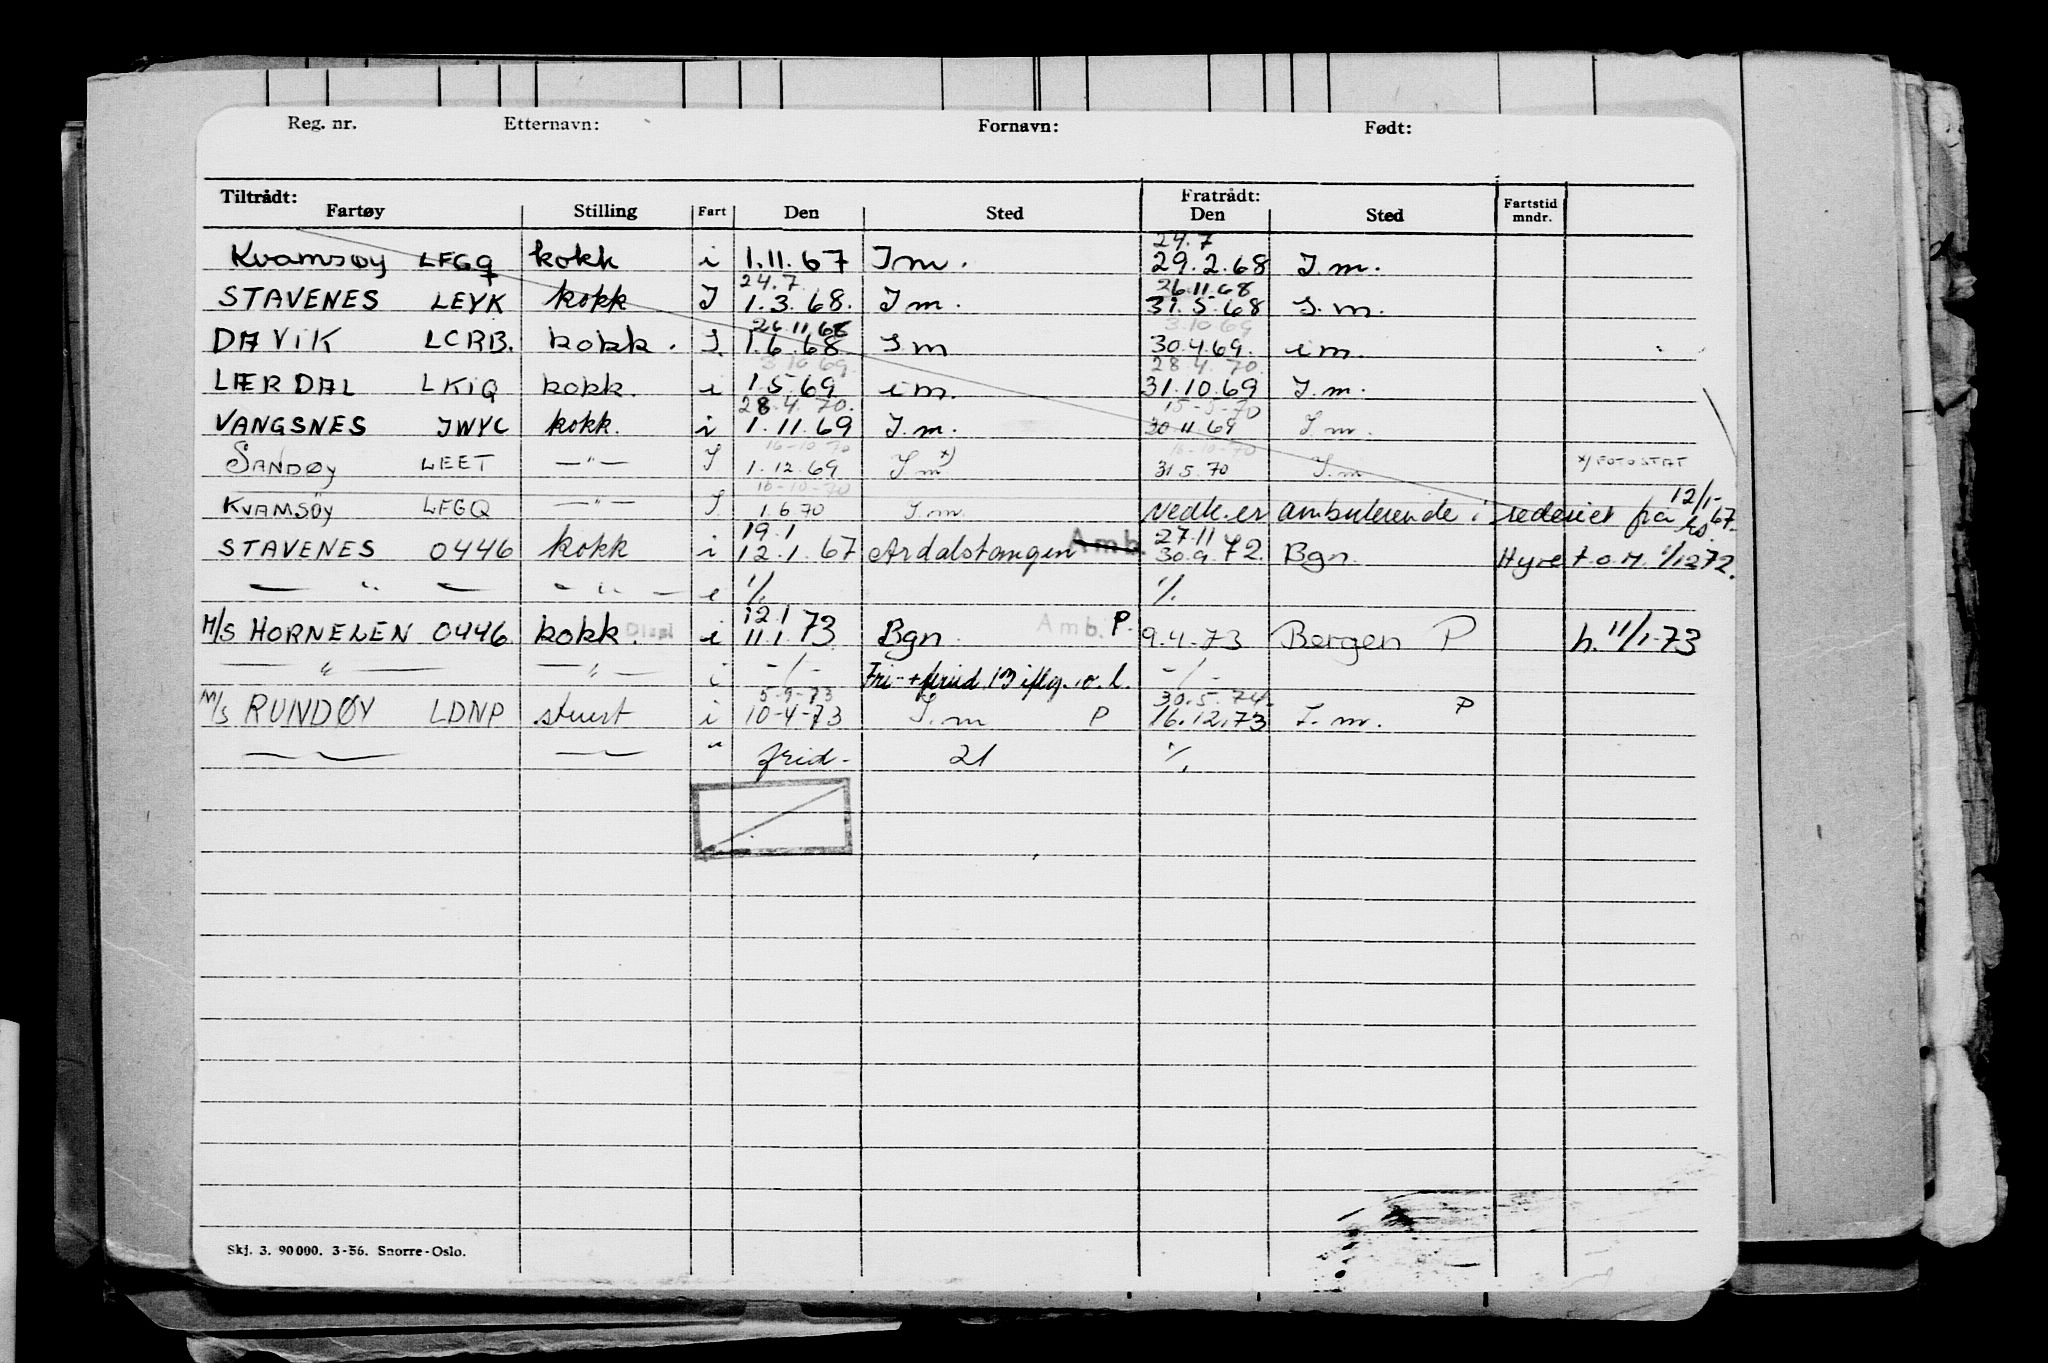 Reg. nr. Etternavn: Fornavn: Født:
Tiltrådt: Fratrådt:
Fartøy Stilling Fart Den Sted Den Sted Fartstid mndr.
24.7
Kvamsøy LFGQ kokk i 1.11.67 Im. 29.2.68 I.m.
24.7 26.11.68
STAVENES LEYK kokk I 1.3.68. Im. 31.5.68 I.m.
26.11.68 3.10.69
DAVIK LCRB. kokk. I. 1.6.68 Im 30.4.69. im.
3.10.69. 28.4.70.
LÆRDAL LKIQ kokk. i 1.5.69 im. 31.10.69 I.m.
28.4.70. 15-5-70
VANGSNES JWYC kokk. i 1.11.69 I.m. 30.11.69 I.m.
16-10-70 16-10-70
SANDØY LEET —"— I 1.12.69 I.m x) 31.5.70 I.m x) FOTOSTAT
16-10-70
KVAMSÖY LFGQ —"— I 1.6.70 I.m. Vedk. er ambulerende i rederiet fra 12/1-67.
19.1 27.11
STAVENES 0446 kokk i 12.1.67 Ardalstangen Amb. 30.9.72. Bgn. Hyre t.o.m. 1/12 72.
— " — — " — e 1/. 1/.
12.1
M/S HORNELEN 0446 kokk. i 11.1.73 Bgn. Amb. P. 9.4.73 Bergen P h. 11/1-73
— " — —"— i -/- Fri- + -/-
5-9-73 30.5.74.
M/S RUNDØY LDNP stuert i 10-4-73 I.m P 16.12.73 I.m. P
— " — — " — " frid- 21 1/.
Skj. 3. 90000. 3-56. Snorre-Oslo.